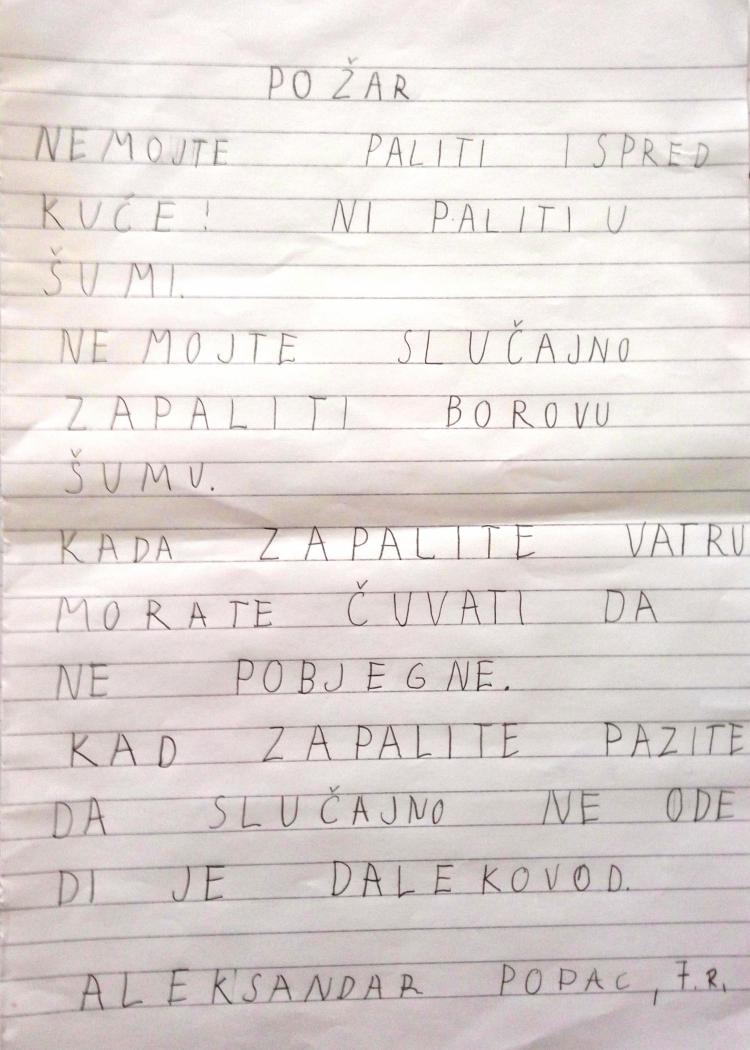 POŽAR
NEMOJTE PALITI ISPRED
KUĆE! NI PALITI U
ŠUMI.
NE MOJTE SLUČAJNO
ZAPALITI BOROVU
ŠUMU.
KADA ZAPALITE VATRU
MORATE ČUVATI DA
NE POBJEGNE.
KAD ZAPALITE PAZITE
DA SLUČAJNO NE ODE
DI JE DALEKOVOD.
ALEKSANDAR POPAC, 7.R.